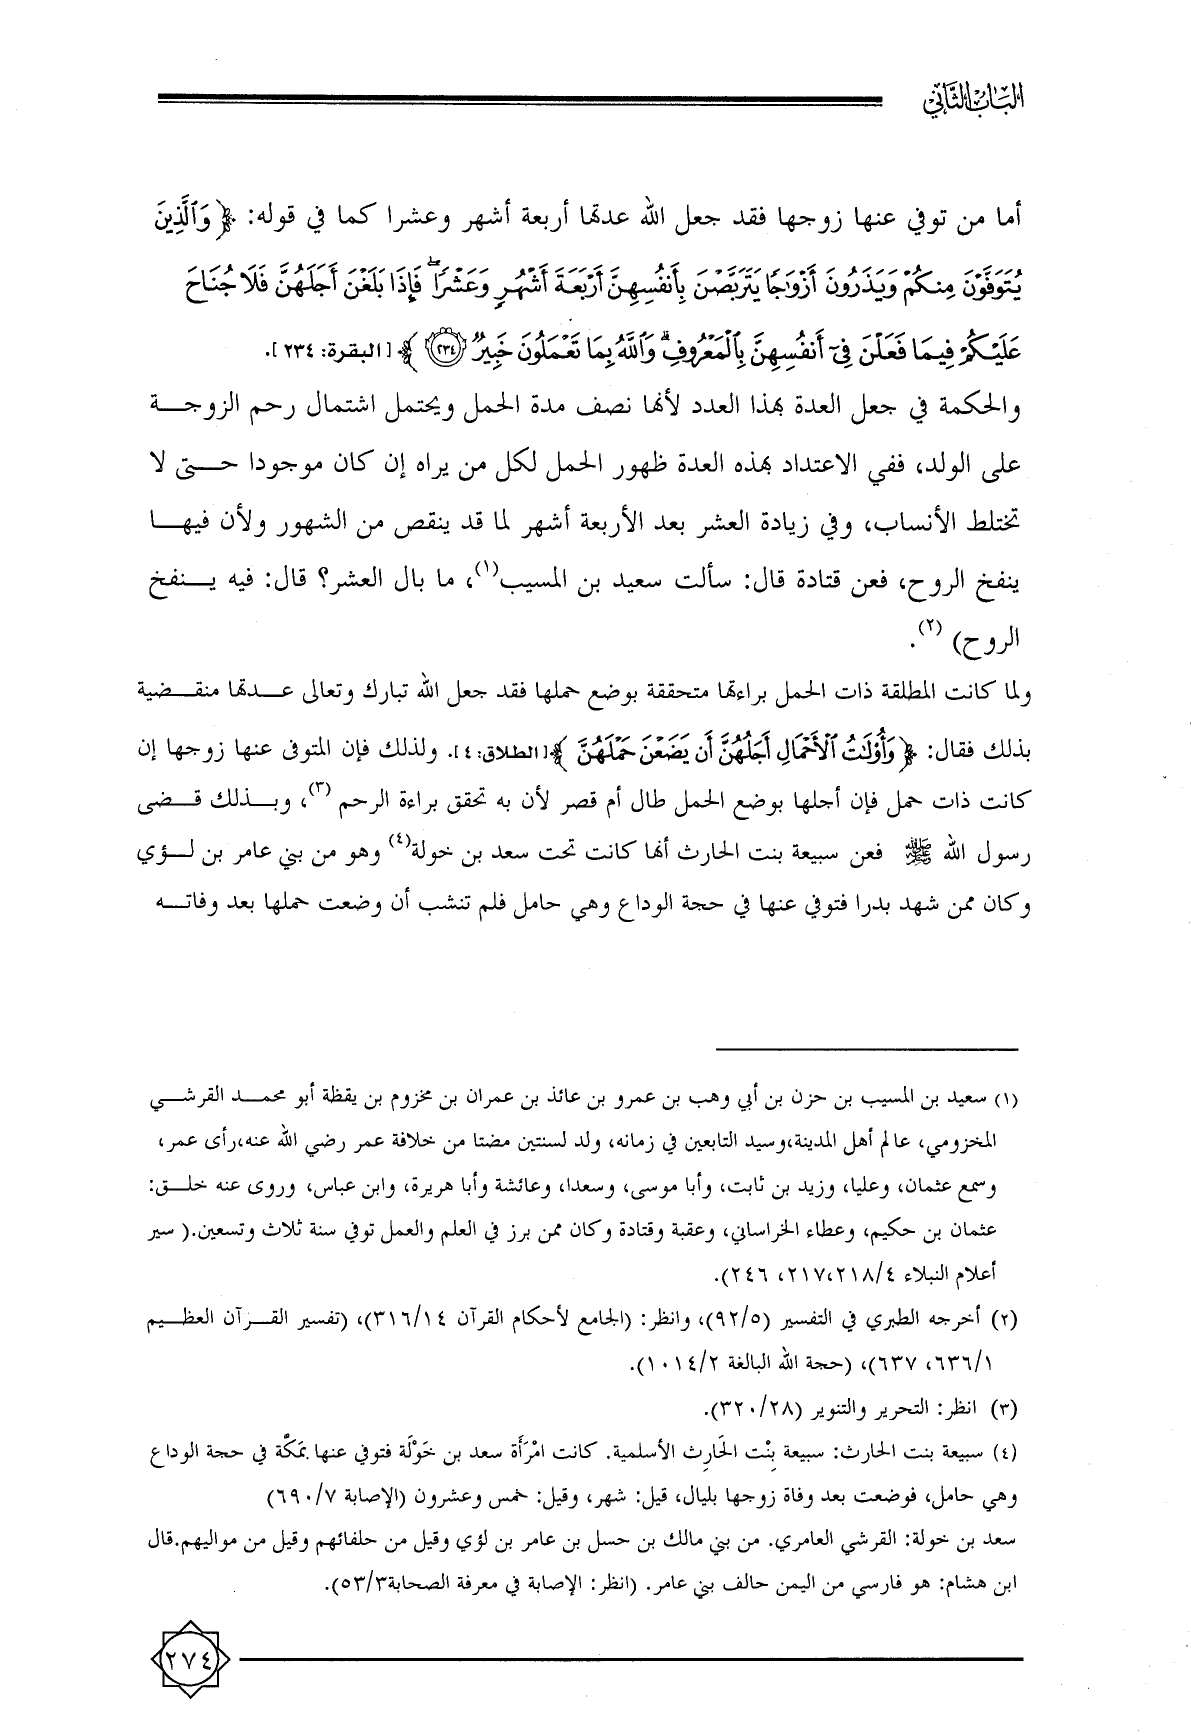 الباب الثاني
أما من توفي عنها زوجها فقد جعل الله عدتها أربعة أشهر وعشرا كما في قوله: ﴿ وَٱلَّذِينَ
يُتَوَفَّوْنَ مِنكُمْ وَيَذَرُونَ أَزْوَٰجًا يَتَرَبَّصْنَ بِأَنفُسِهِنَّ أَرْبَعَةَ أَشْهُرٍ وَعَشْرًا ۖ فَإِذَا بَلَغْنَ أَجَلَهُنَّ فَلَا جُنَاحَ
عَلَيْكُمْ فِيمَا فَعَلْنَ فِىٓ أَنفُسِهِنَّ بِٱلْمَعْرُوفِ ۗ وَٱللَّهُ بِمَا تَعْمَلُونَ خَبِيرٌ ﴿٢٣٤﴾ ﴾ [البقرة: ٢٣٤].
والحكمة في جعل العدة بهذا العدد لأنها نصف مدة الحمل ويحتمل اشتمال رحم الزوجـــة
على الولد، ففي الاعتداد بهذه العدة ظهور الحمل لكل من يراه إن كان موجودا حـــتى لا
تختلط الأنساب، وفي زيادة العشر بعد الأربعة أشهر لما قد ينقص من الشهور ولأن فيهـــا
ينفخ الروح، فعن قتادة قال: سألت سعيد بن المسيب(١)، ما بال العشر؟ قال: فيه يـــنفخ
الروح) (٢).
ولما كانت المطلقة ذات الحمل براءتها متحققة بوضع حملها فقد جعل الله تبارك وتعالى عـــدتها منقـــضية
بذلك فقال: ﴿ وَأُو۟لَٰتُ ٱلْأَحْمَالِ أَجَلُهُنَّ أَن يَضَعْنَ حَمْلَهُنَّ ﴾[الطلاق:٤]. ولذلك فإن المتوفى عنها زوجها إن
كانت ذات حمل فإن أجلها بوضع الحمل طال أم قصر لأن به تحقق براءة الرحم (٣)، وبـــذلك قـــضى
رسول الله ﷺ فعن سبيعة بنت الحارث أنها كانت تحت سعد بن خولة(٤) وهو من بني عامر بن لـــؤي
وكان ممن شهد بدرا فتوفي عنها في حجة الوداع وهي حامل فلم تنشب أن وضعت حملها بعد وفاتـــه
(١) سعيد بن المسيب بن حزن بن أبي وهب بن عمرو بن عائذ بن عمران بن مخزوم بن يقظة أبو محمـــد القرشـــي
المخزومي، عالم أهل المدينة،وسيد التابعين في زمانه، ولد لسنتين مضتا من خلافة عمر رضي الله عنه،رأى عمر،
وسمع عثمان، وعليا، وزيد بن ثابت، وأبا موسى، وسعدا، وعائشة وأبا هريرة، وابن عباس، وروى عنه خلـــق:
عثمان بن حكيم، وعطاء الخراساني، وعقبة وقتادة وكان ممن برز في العلم والعمل توفي سنة ثلاث وتسعين.( سير
أعلام النبلاء ٤/ ٢١٧،٢١٨، ٢٤٦).
(٢) أخرجه الطبري في التفسير (٩٢/٥)، وانظر: (الجامع لأحكام القرآن ٣١٦/١٤)، (تفسير القـــرآن العظـــيم
٦٣٦/١، ٦٣٧)، (حجة الله البالغة ١٠١٤/٢).
(٣) انظر: التحرير والتنوير (٣٢٠/٢٨).
(٤) سبيعة بنت الحارث: سبيعة بِنْت الحَارِث الأسلمية. كانت امْرَأة سعد بن خَوْلَة فتوفي عنها بمَكّة في حجة الوداع
وهي حامل، فوضعت بعد وفاة زوجها بليال، قيل: شهر، وقيل: خمس وعشرون (الإصابة ٦٩٠/٧)
سعد بن خولة: القرشي العامري. من بني مالك بن حسل بن عامر بن لؤي وقيل من حلفائهم وقيل من مواليهم.قال
ابن هشام: هو فارسي من اليمن حالف بني عامر. (انظر: الإصابة في معرفة الصحابة٥٣/٣).
٢٧٤